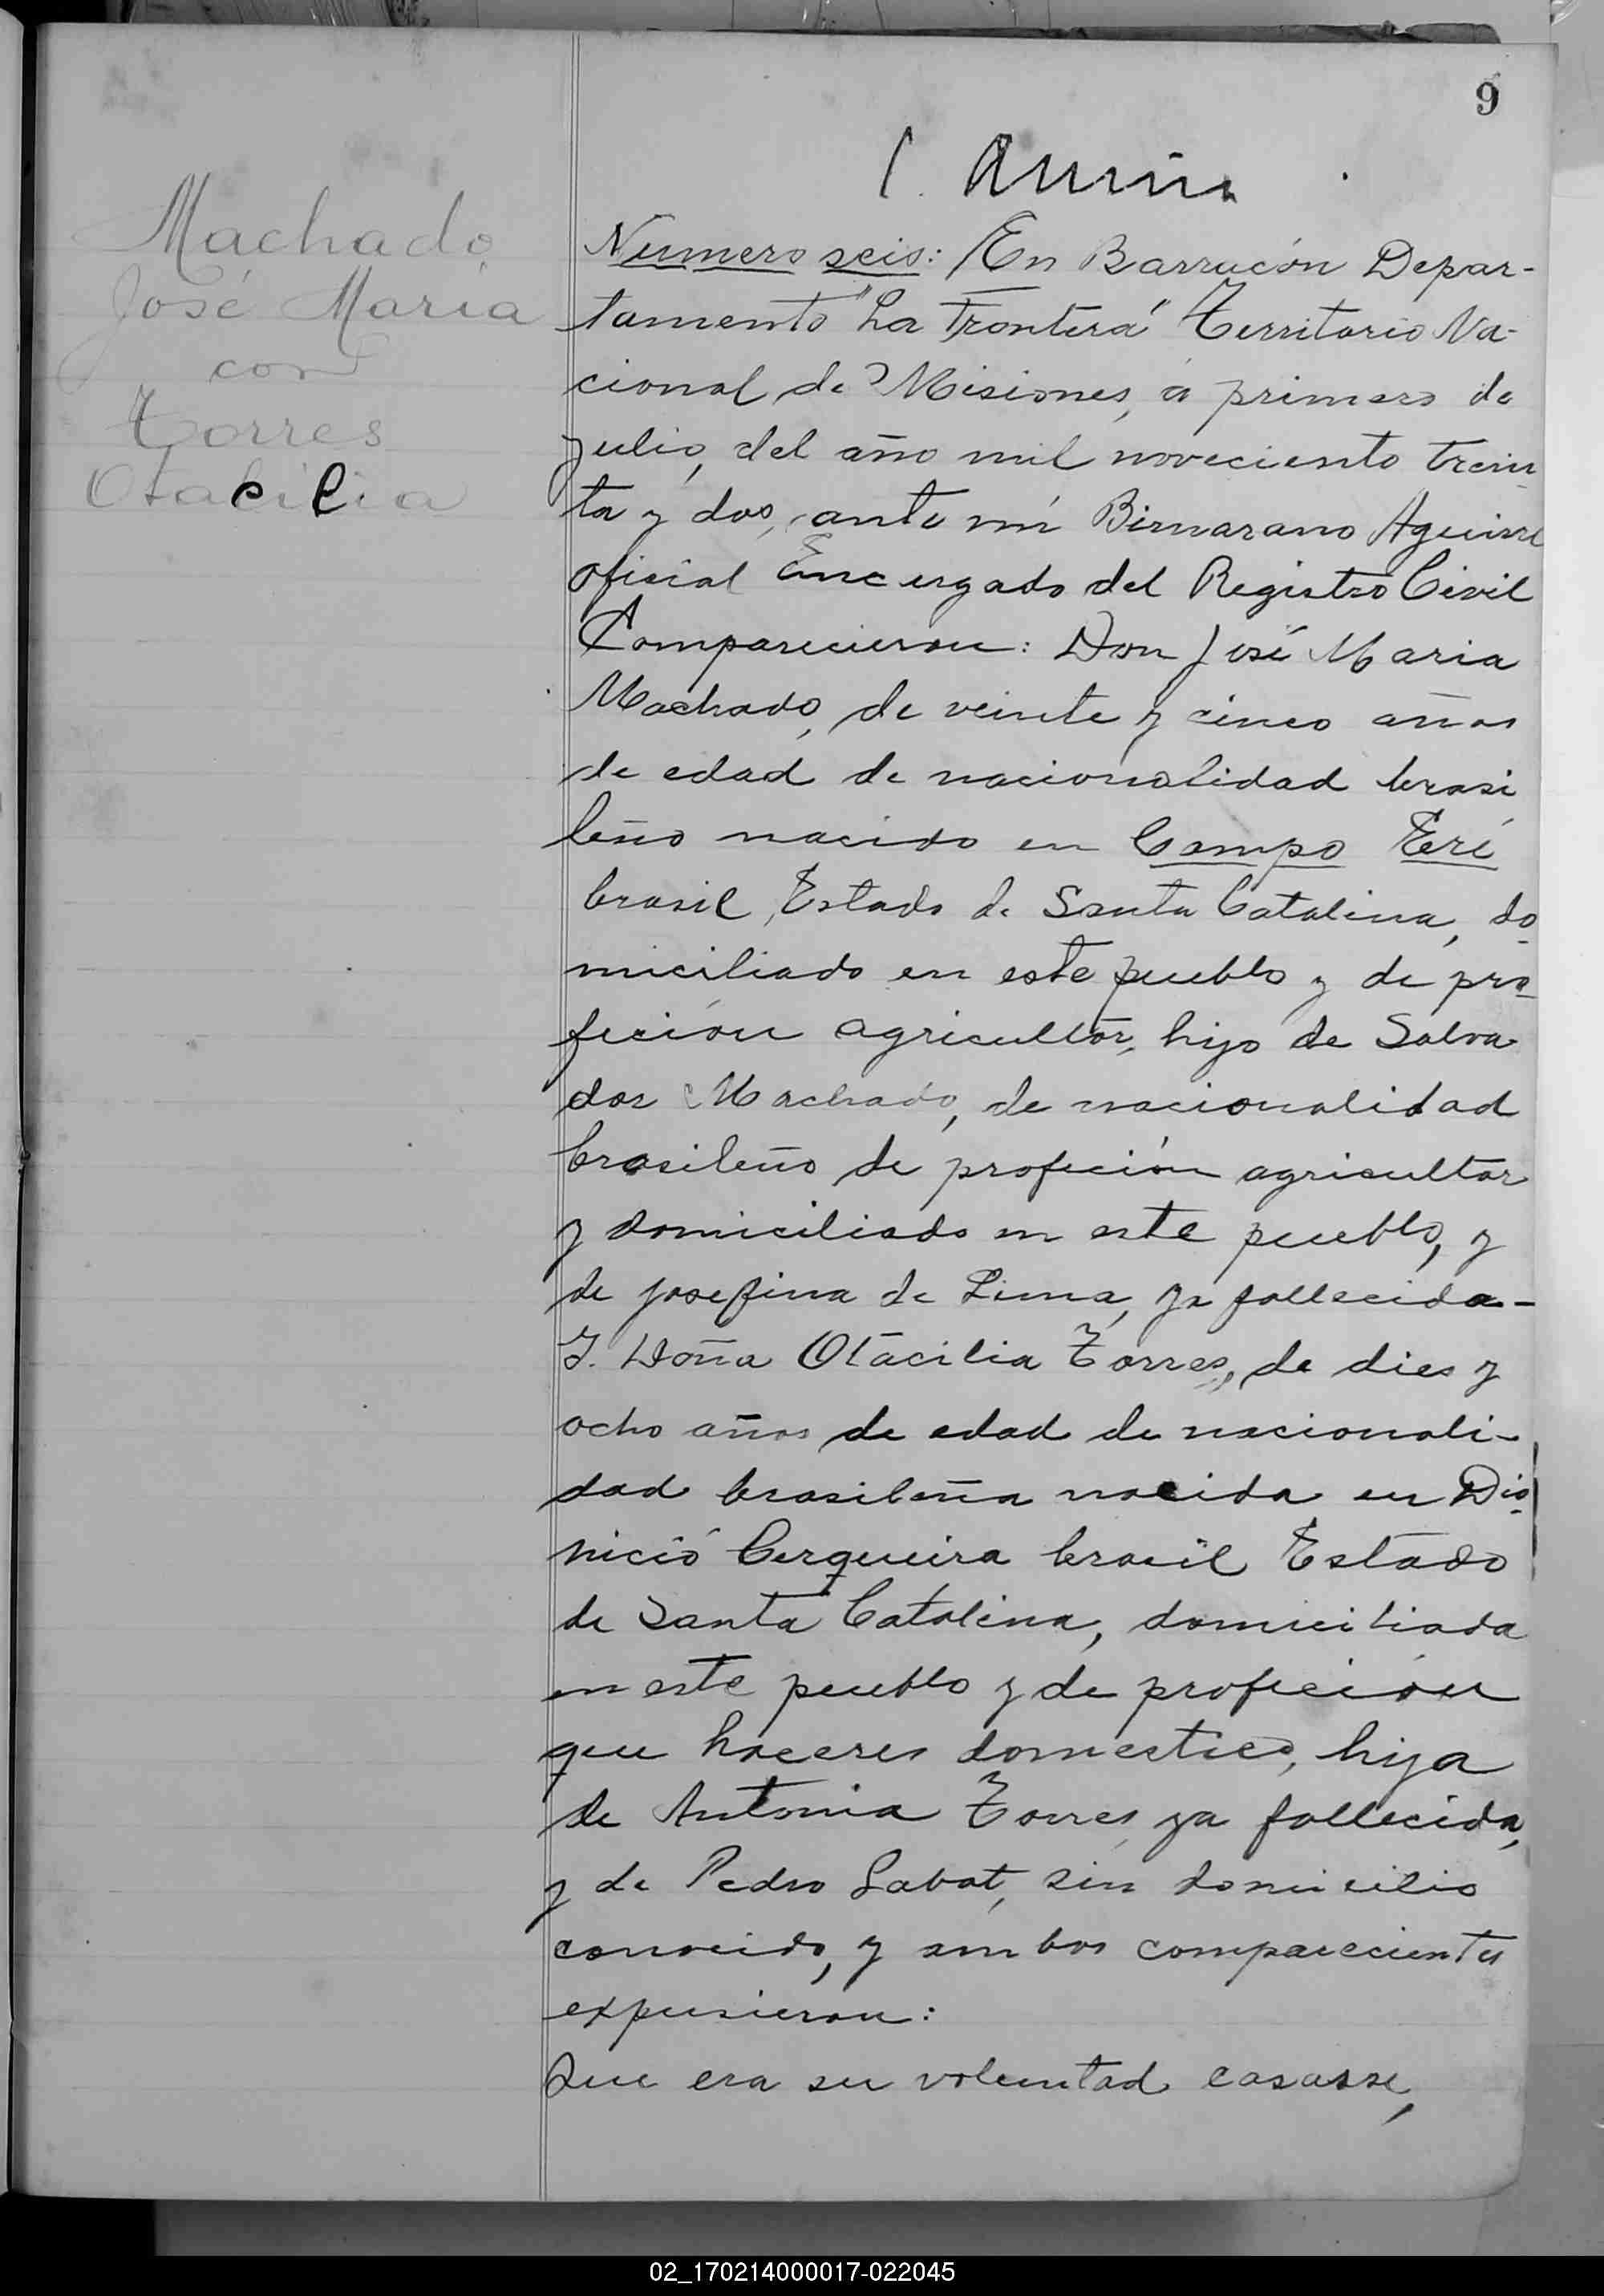 9
Machado
José Maria
con
Torres
Otacilia
Numero seis: En Barracón Depar-
tamento "La Frontera" Territorio Na-
cional de Misiones, a primero de
julio, del año mil noveciento trein
ta y dos, ante mí Aguirre
oficial Encargado del Registro Civil
Comparecieron: Don José Maria
Machado, de veinte y cinco años
de edad de nacionalidad brasi
leño nacido en Campo Eré
brasil, Estado de Santa Catalina, do
miciliado en este pueblo y de pro
feción agricultor, hijo de Salva
dor Machado, de nacionalidad
brasileño de profeción agricultor
y domiciliado en este pueblo, y
de josefina de Lima, ya fallecida-
Y. Doña Otacilia Torres, de dies y
ocho años de edad de nacionali-
dad brasileña nacida en Dio
nició Cerqueira brasil Estado
de Santa Catalina, domiciliada
en este pueblo y de profeción
que haceres domestico, hija
de Antonia Torres, ya fallecida,
y de Pedro Labat, sin domicilio
conocido, y ambos comparecientes
expusieron:
Que era su voluntad casarse,
02_170214000017-022045